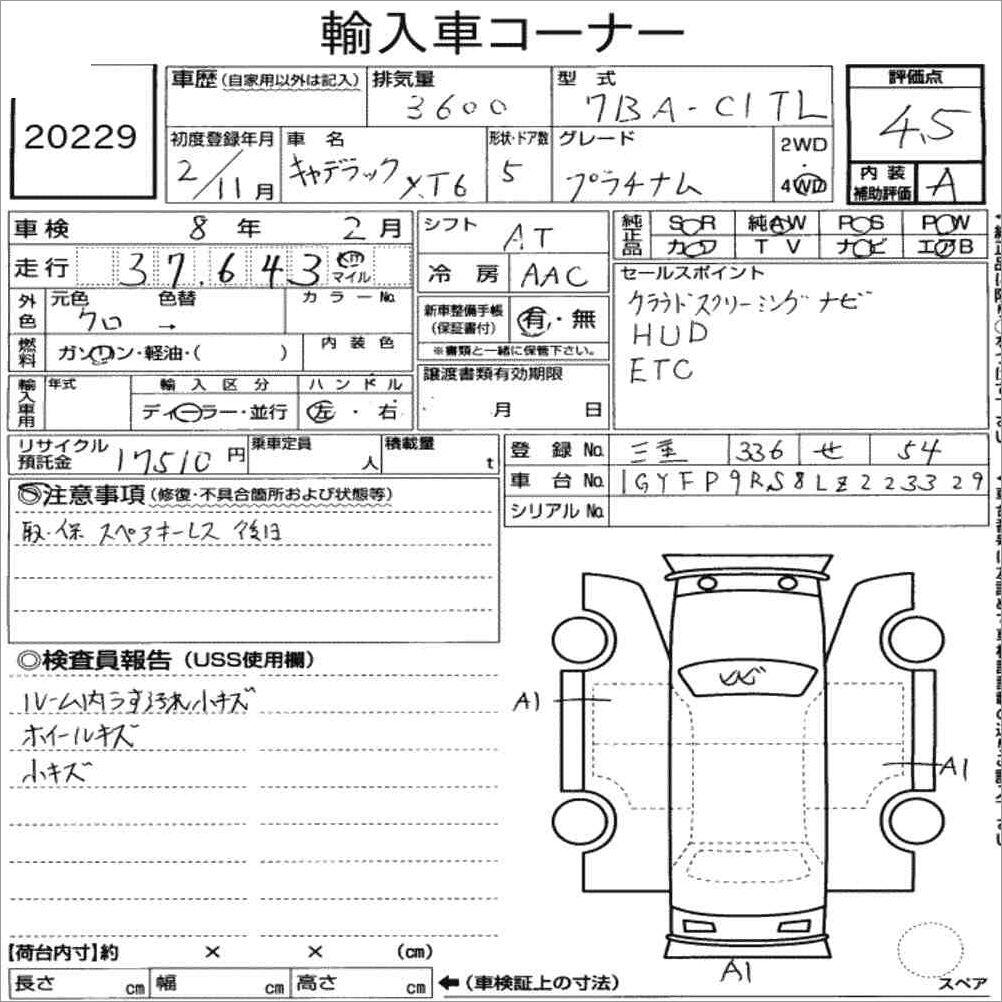 輸入車コーナー
20229
車歴 (自家用以外は記入)
排気量 3600
型式 7BA-C1TL
評価点 4.5
初度登録年月 2/11月
車名 キャデラック XT6
形状・ドア数 5
グレード プラチナム
2WD・4WD
内装補助評価 A
車検 8年 2月
走行 37,643 km マイル
外色 元色 クロ 色替 → カラーNo.
燃料 ガソリン・軽油・( )
内装色
輸入車用 年式
輸入区分 ディーラー・並行
ハンドル 左・右
シフト AT
冷房 AAC
新車整備手帳(保証書付) 有・無
※書類と一緒に保管下さい。
譲渡書類有効期限
月 日
純正品 SR 純AW PS PW
カワ TV ナビ エアB
セールスポイント
クラウドストリーミングナビ
HUD
ETC
リサイクル預託金 17510円
乗車定員 人
積載量 t
登録No. 三重 336 せ 54
車台No. 1GYFP9RS8LZ223329
シリアルNo.
◎注意事項 (修復・不具合箇所および状態等)
取・保 スペアキーレス 後日
◎検査員報告 (USS使用欄)
ルーム内うす汚れ小キズ
ホイールキズ
小キズ
A1
A1
A1
【荷台内寸】約 × × (cm)
長さ cm 幅 cm 高さ cm ←(車検証上の寸法)
スペア